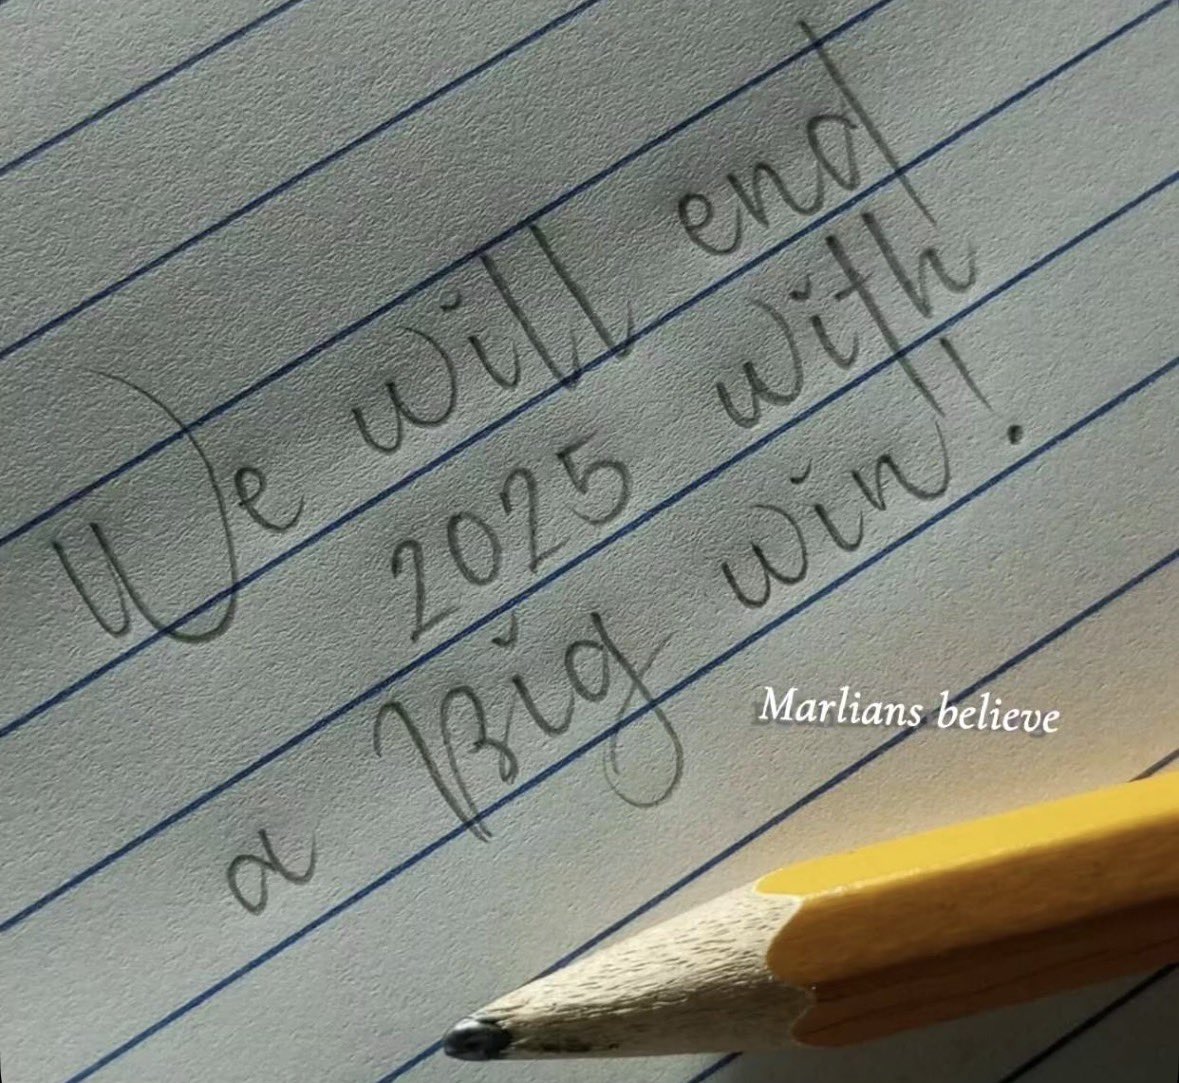 We will end
2025 with
a Big win!
Marlians believe